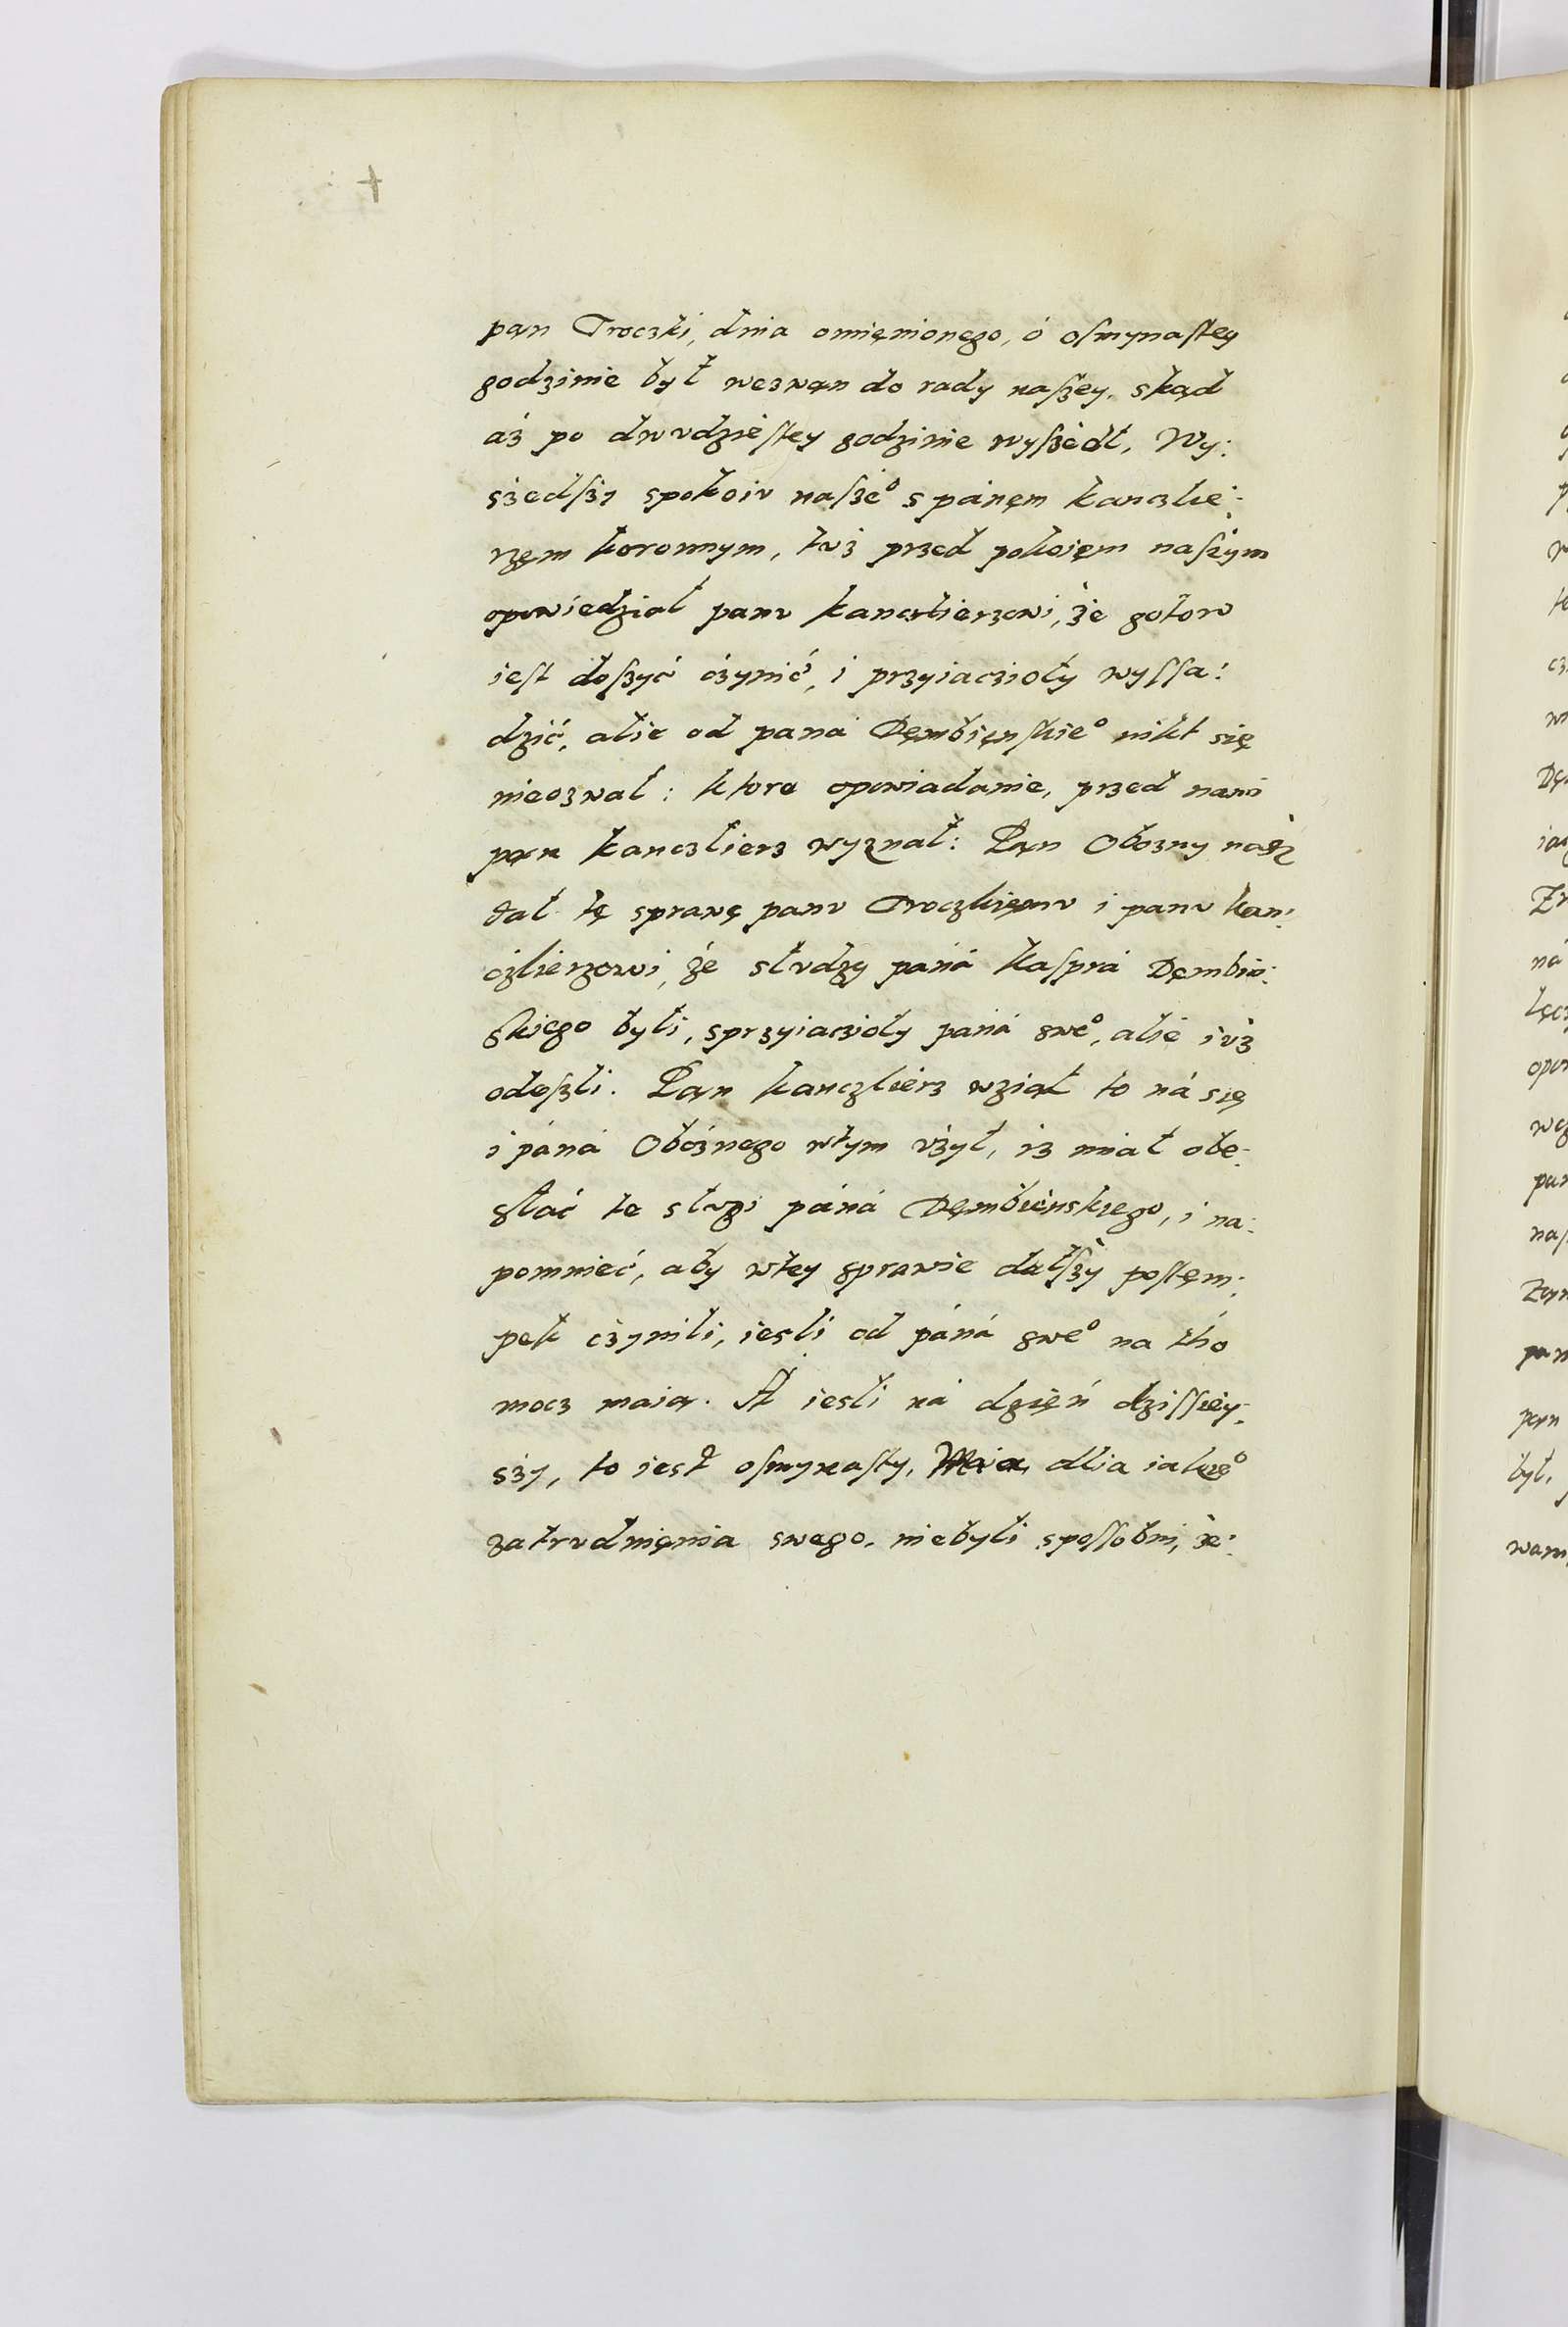 pąn Troczki, dnia omięnionego, ó osmynastey
godzinie był wezwąn do rady naszey, skąd
áż po dwudziestey godzinie wyszedł, Wy:
szedszy spokoiu nasze° s pánęm kanczlie:
rzęm koronnym, tuż przed pokoięm naszym
opowiedział panu kanczlierzowi, że gotow
iest doszyć czynić, i przyiaczioły wyssa:
dzić, alie od pana Dęmbięnskie° nikt się
nieozwał: ktore opowiadanie, przed nami
pąn kanczlierz wyznał: Pąn Obozny nasz
dał tę sprawę panu Troczkięmu i panu kan:
czlierzowi, że słudzy páná kasprá Dęmbię:
skiego byli, sprzyiaczioły páná swe°, alie iuż
odeszli. Pąn kanczlierz wziął to ná się
i páná Obóznego wtym użył, iz miał obe:
słać te sługi páná Dęmbieńskiego, i na:
pomnieć, aby wtey sprawie dalszy postęm:
pek czynili, iesli od páná swe° na tho
mocz maią. A iesli ná dzięń dzissiey:
szy, to iest osmynasty, Maia, dlia iakie°
zatrudnięnia swego, niebyli spossobni, że:
p
Dę
Zr
ná
opo
pan
naſ
pan
był,